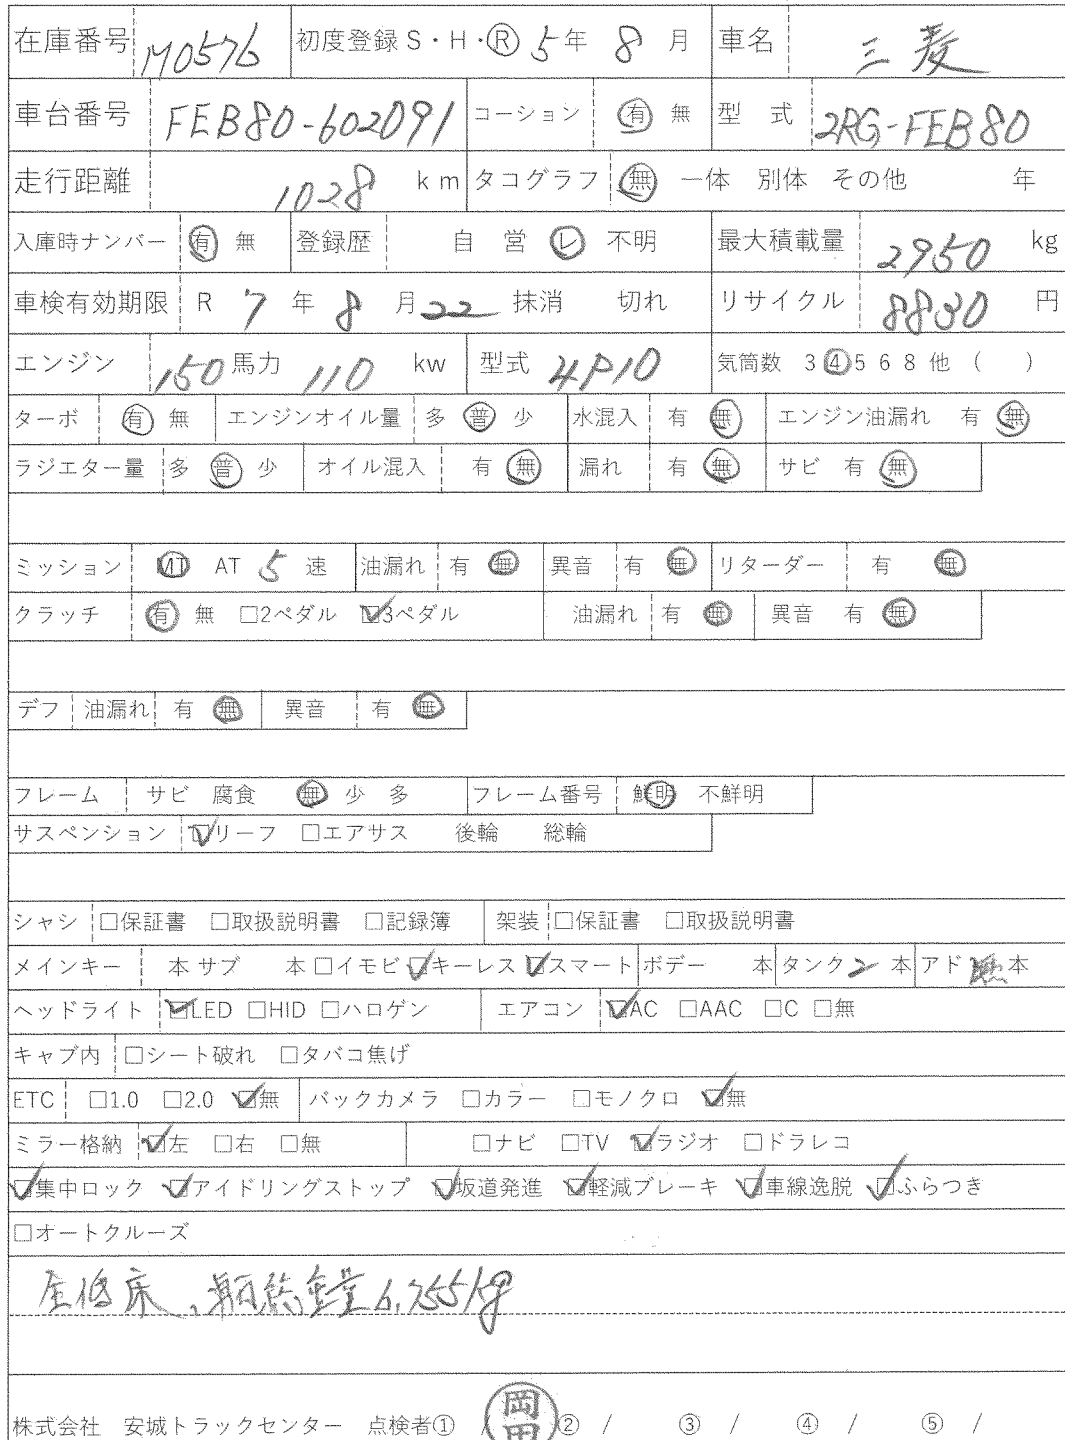 在庫番号 M0576 初度登録 S・H・Ⓡ 5年 8 月 車名 三菱
車台番号 FEB80-602091 コーション 有 無 型 式 2RG-FEB80
走行距離 1028 km タコグラフ 無 一体 別体 その他 年
入庫時ナンバー 有 無 登録歴 自 営 レ 不明 最大積載量 2950 kg
車検有効期限 R 7 年 8 月 22 抹消 切れ リサイクル 8830 円
エンジン 150 馬力 110 kw 型式 4P10 気筒数 3 ④ 5 6 8 他 ( )
ターボ 有 無 エンジンオイル量 多 普 少 水混入 有 無 エンジン油漏れ 有 無
ラジエター量 多 普 少 オイル混入 有 無 漏れ 有 無 サビ 有 無
ミッション MT AT 5 速 油漏れ 有 無 異音 有 無 リターダー 有 無
クラッチ 有 無 □2ペダル ☑3ペダル 油漏れ 有 無 異音 有 無
デフ 油漏れ 有 無 異音 有 無
フレーム サビ 腐食 無 少 多 フレーム番号 鮮明 不鮮明
サスペンション ☑リーフ □エアサス 後輪 総輪
シャシ □保証書 □取扱説明書 □記録簿 架装 □保証書 □取扱説明書
メインキー 本 サブ 本 □イモビ ☑キーレス ☑スマート ボデー 本 タンク 2 本 アド 無 本
ヘッドライト ☑LED □HID □ハロゲン エアコン ☑AC □AAC □C □無
キャブ内 □シート破れ □タバコ焦げ
ETC □1.0 □2.0 ☑無 バックカメラ □カラー □モノクロ ☑無
ミラー格納 ☑左 □右 □無 □ナビ □TV ☑ラジオ □ドラレコ
☑集中ロック ☑アイドリングストップ ☑坂道発進 ☑軽減ブレーキ ☑車線逸脱 ☑ふらつき
□オートクルーズ
全低床、車両総重量 6,755kg
株式会社 安城トラックセンター 点検者① / 岡田 ② / ③ / ④ / ⑤ /